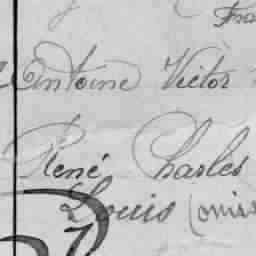 Fra
Antoine Victor
René Charles
Louis